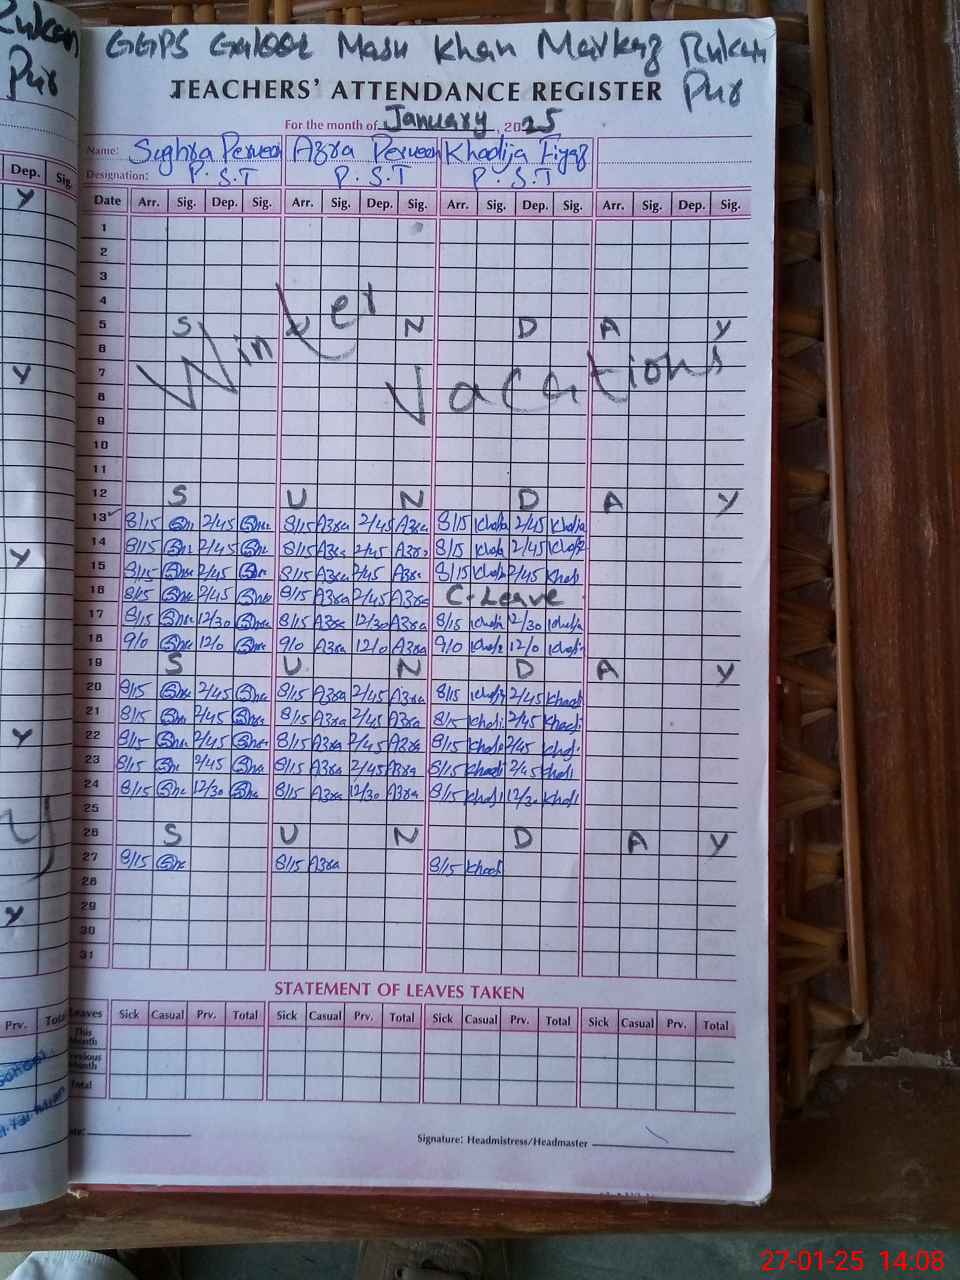 GGPS Galoot Masu Khan Markaz Rukan Pur
TEACHERS' ATTENDANCE REGISTER
For the month of January, 2025
Name: Sughra Perveen Azra Perveen Khadija Fiyaz
Designation: P.S.T P.S.T P.S.T
Date Arr. Sig. Dep. Sig. Arr. Sig. Dep. Sig. Arr. Sig. Dep. Sig. Arr. Sig. Dep. Sig.
1
2
3
4
5 S U N D A Y
6
7
8
Winter Vacations
9
10
11
12 S U N D A Y
13 8/15 2/45 8/15 Azra 2/45 Azra 8/15 Khadija 2/45 Khadija
14 8/15 2/45 8/15 Azra 2/45 Azra 8/15 2/45
15 8/15 2/45 8/15 Azra 2/45 Azra 8/15 2/45
16 8/15 2/45 8/15 Azra 2/45 Azra C-Leave
17 8/15 12/30 8/15 Azra 12/30 Azra 8/15 12/30
18 9/0 12/0 9/0 Azra 12/0 Azra 9/0 12/0
19 S U N D A Y
20 8/15 2/45 8/15 Azra 2/45 Azra 8/15 2/45 Khadi
21 8/15 2/45 8/15 Azra 2/45 Azra 8/15 Khadi 2/45 Khadi
22 8/15 2/45 8/15 Azra 2/45 Azra 8/15 2/45
23 8/15 2/45 8/15 Azra 2/45 Azra 8/15 Khadi 2/45 Khadi
24 8/15 12/30 8/15 Azra 12/30 Azra 8/15 Khadi 12/30 Khadi
25
26 S U N D A Y
27 8/15 8/15 Azra 8/15 Khadi
28
29
30
31
STATEMENT OF LEAVES TAKEN
Leaves Sick Casual Prv. Total Sick Casual Prv. Total Sick Casual Prv. Total Sick Casual Prv. Total
This Month
Previous Month
Total
Signature: Headmistress/Headmaster
Pur
Dep. Sig.
Y
Y
Y
Y
Y
Prv. Total
27-01-25 14:08